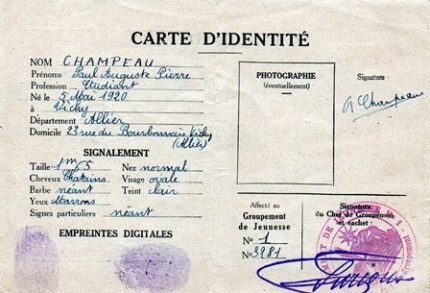 CARTE D'IDENTITÉ
NOM CHAMPEAU
Prénoms Paul Auguste Pierre
Profession Etudiant
Né le 5 Mai 1920
à Vichy
Département Allier
Domicile 23 rue du Bourbonnais Vichy
(Allier)
SIGNALEMENT
Taille 1m65 Nez normal
Cheveux Chatains Visage ovale
Barbe néant Teint clair
Yeux Marrons
Signes particuliers néant
EMPREINTES DIGITALES
PHOTOGRAPHIE
(éventuellement)
Signature
Champeau
Affecté au
Groupement
de Jeunesse
N° 1
N° 3981
Signature
du Chef de Groupement
et cachet